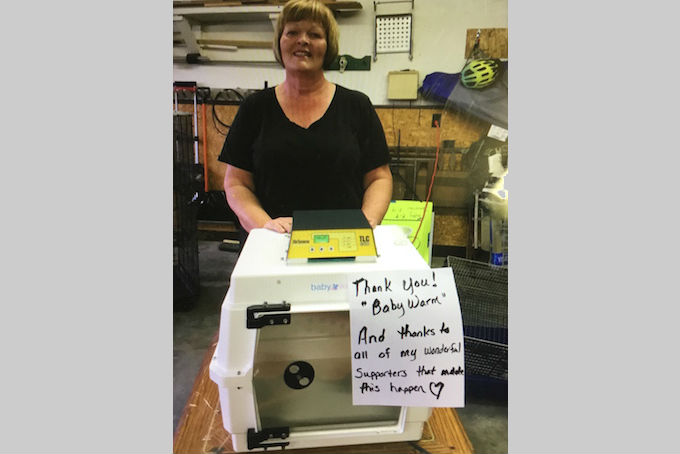 TLC
baby.
Thank You!
"Baby Warm"
And thanks to
all of my wonderful
Supporters that made
this happen ♡